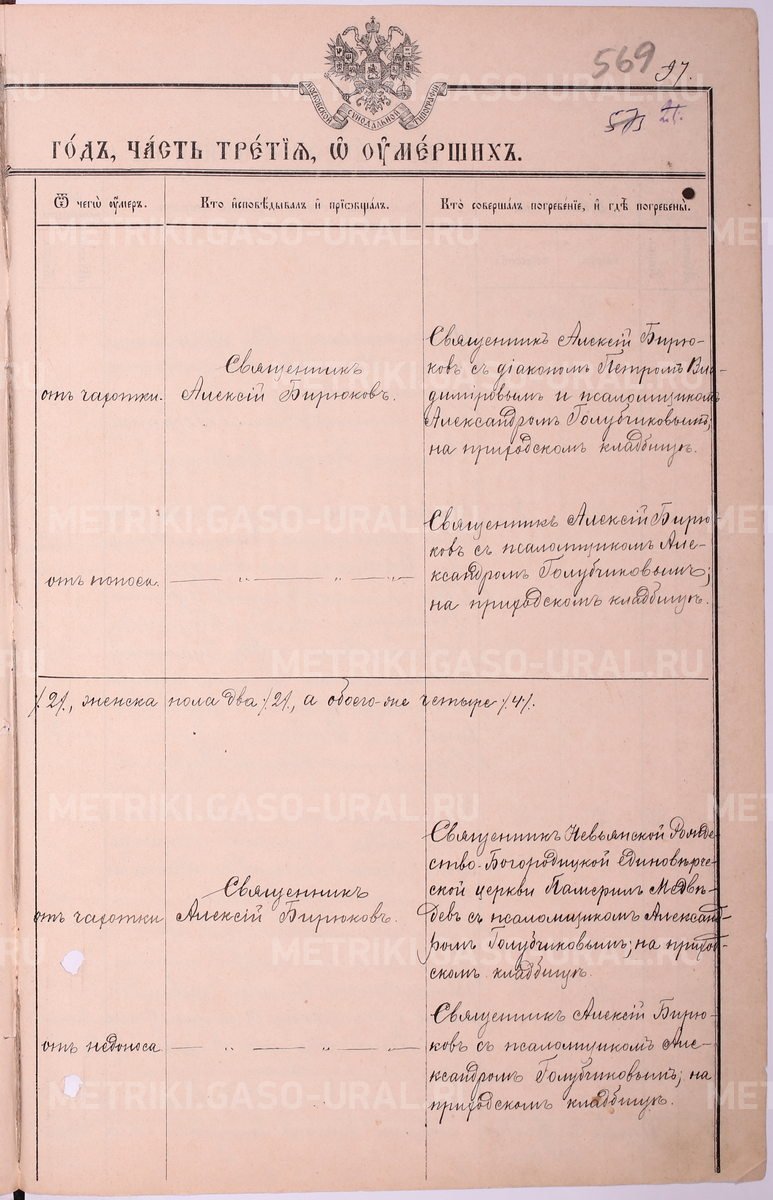 569
97.
573
МОСКОВСКОЙ СѴНОДАЛЬНОЙ ТИПОГРАФІИ
ГО́ДЪ, ЧА́СТЬ ТРЕ́ТІѦ, Ѡ҆ ОУ҆МЕ́РШИХЪ.
Ѿ чегѡ̀ оу҆́меръ.
Кто̀ и҆сповѣ́дывалъ и҆ прїѡбща́лъ.
Кто̀ соверша́лъ погребе́нїе, и҆ гдѣ̀ погребены̀.
отъ чахотки.
Священникъ
Алексій Бирюковъ.
Священникъ Алексій Бирю-
ковъ съ діакономъ Петромъ Вла-
диміровымъ и псаломщикомъ
Александромъ Голубчиковымъ;
на приходскомъ кладбищѣ.
отъ поноса.
— „ — „ —
Священникъ Алексій Бирю
ковъ съ псаломщикомъ Але-
ксандромъ Голубчиковымъ;
на приходскомъ кладбищѣ.
/2/, женска пола два /2/, а обоего-же четыре /4/.
отъ чахотки
Священникъ
Алексій Бирюковъ.
Священникъ Невьянской Рожде-
ство-Богородицкой единовѣрче-
ской церкви Памфилъ Медвѣ-
девъ съ псаломщикомъ Александ-
ромъ Голубчиковымъ; на приход-
скомъ кладбищѣ.
отъ недоноса
— „ — „ —
Священникъ Алексій Бирю-
ковъ съ псаломщикомъ Але-
ксандромъ Голубчиковымъ; на
приходскомъ кладбищѣ.
METRIKI.GASO-URAL.RU